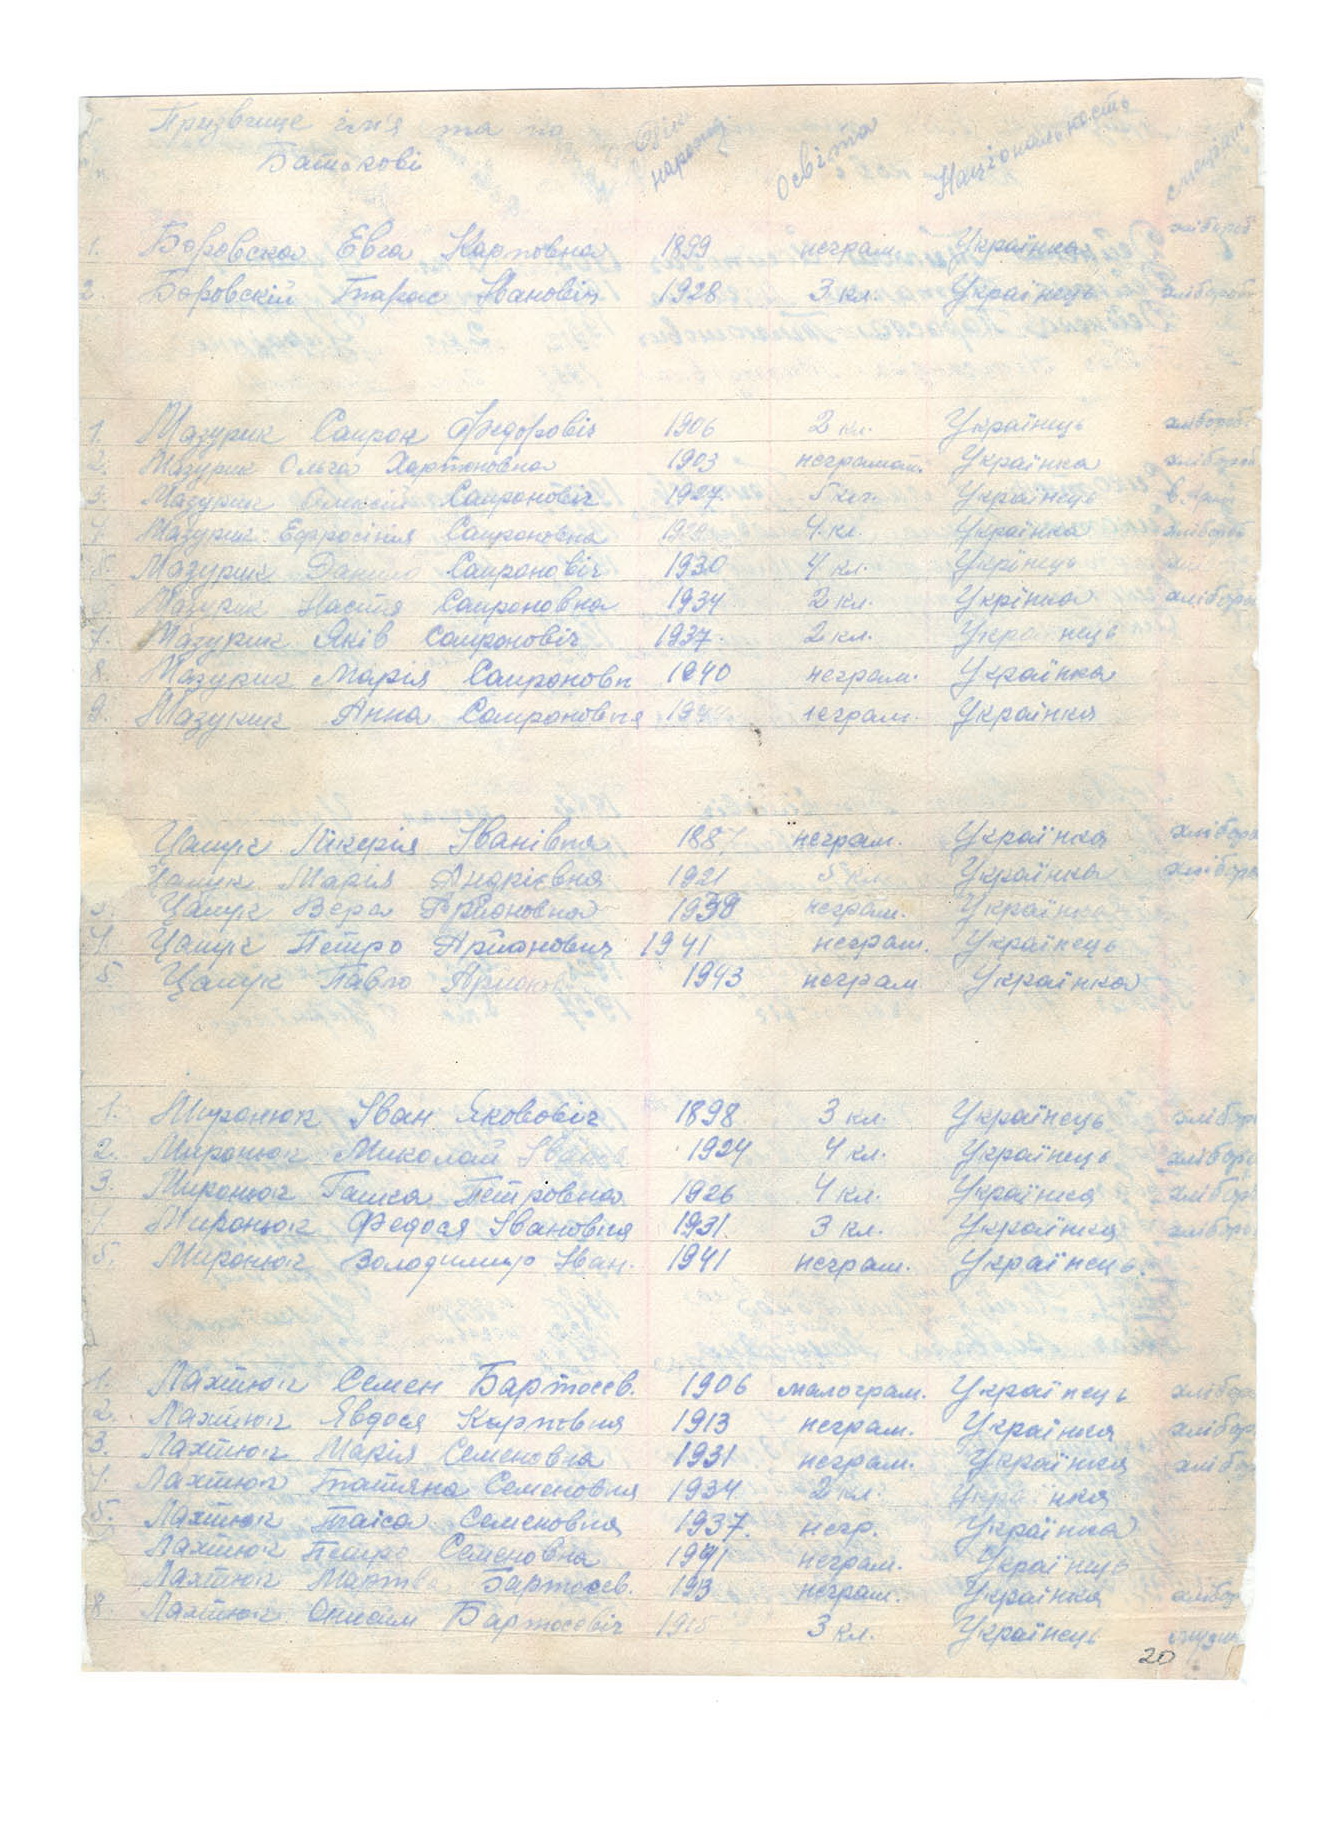 Призвище ім'я та по Батькові народ. Освіта Національность
1. Боровска Евга Карповна 1899 неграм. Українка хлібороб
2. Боровскій Тарас Івановіч 1928 3 кл. Українець хлібороб
1. Мазурик Сапрон Федоровіч 1906 2 кл. Українець хлібороб
2. Мазурик Ольга Харитоновна 1903 неграмот. Українка хлібороб
3. Мазурик Олексій Сапроновіч 1927 5 кл. Українець
4. Мазурик Ефросінія Сапроновна 4 кл. Українка хлібороб
5. Мазурик Данило Сапроновіч 1930 4 кл. Укрінець
6. Мазурик Настя Сапроновна 1934 2 кл. Укрінка хлібороб
7. Мазурик Яків Сапроновіч 1937. 2 кл. Українець
8. Мазурик Марія Сапроновн 1940 неграм. Українка
9. Мазурик Анна Сапроновня неграм. Українка
Цапук Лікерія Іванівна неграм. Українка хлібороб
Цапук Марія Андрієвна 1921 5 кл. Українка хлібороб
3. Цапук Вера 1938 неграм. Українка
4. Цапук Петро 1941 неграм. Українець
5 Цапук Павло 1943 неграм Українка
1. Миронюк Іван Яковович 1898. 3 кл. Українець хлібор
2. Миронюк Миколай Іванов 1924 4 кл. Українець хлібороб
3. Миронюк Гашка Петровна 1926 4 кл. Українка хлібор
4. Миронюк Федося Івановня 1931. 3 кл. Українка хлібор
5. Миронюк Володимир Іван. 1941 неграм. Українець.
1. Лахтюк Семен Бартосев. 1906 малограм. Українець хлібор
2. Лахтюк Явдося Карповня 1913 неграм. Українка хлібор
3. Лахтюк Марія Семеновна 1931 неграм. Українка хлібор
4. Лахтюк Татяна Семеновня 1934 2 кл. Українка
5. Лахтюк Таіса Семеновня 1937. негр. Українка
Лахтюк Петро Семеновна 1941 неграм. Українець
Лахтюк Бартосев. неграм. Українка хлібор
8. Лахтюк Онисим Бартосевіч 3 кл. Українець
20